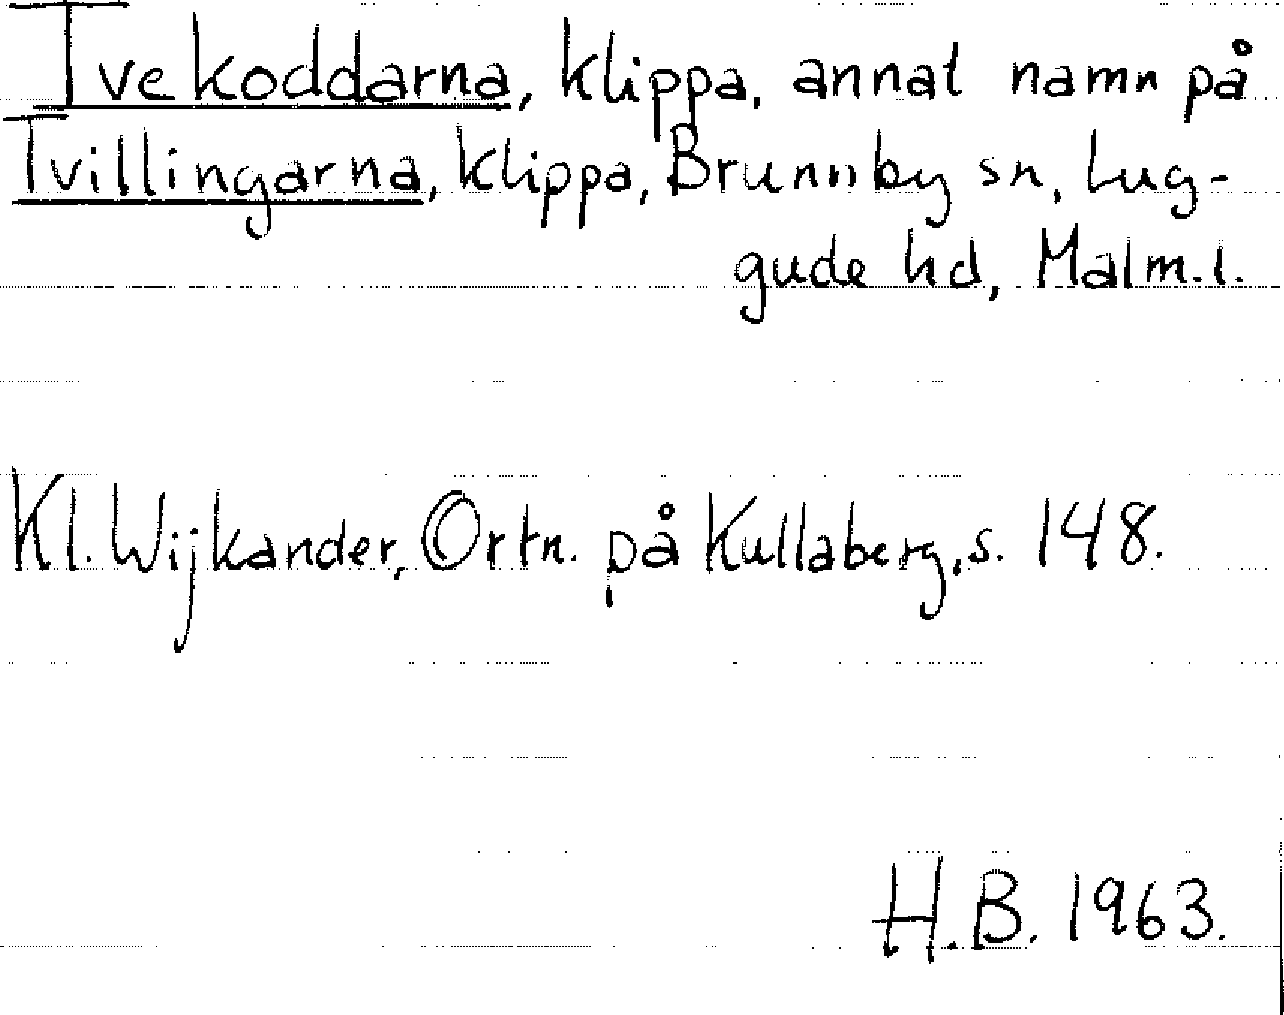 Tvekoddarna, klippa, annat namn på
Tvillingarna, klippa, Brunnby sn, Lug-
gude hd, Malm.l.
Kl. Wijkander, Ortn. på Kullaberg, s. 148.
H.B. 1963.